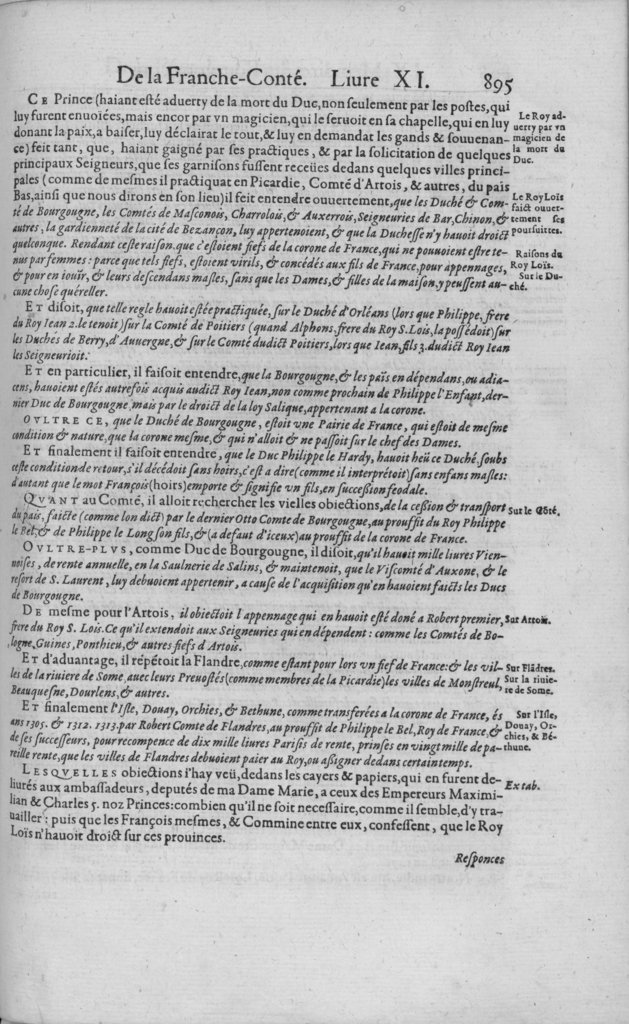 De la Franche-Conté. Liure XI. 895
CE Prince (haiant esté aduerty de la mort du Duc, non seulement par les postes, qui
luy furent enuoiées, mais encor par vn magicien, qui le seruoit en sa chapelle, qui en luy
donant la paix, a baiser, luy déclairat le tout, & luy en demandat les gands & souuenan-
ce) feit tant, que, haiant gaigné par ses practiques, & par la solicitation de quelques
principaux Seigneurs, que ses garnisons fussent receües dedans quelques villes princi-
pales (comme de mesmes il practiquat en Picardie, Comté d'Artois, & autres, du pais
Bas, ainsi que nous dirons en son lieu) il feit entendre ouuertement, que les Duché & Com-
té de Bourgougne, les Comtés de Masconois, Charrolois, & Auxerrois, Seigneuries de Bar, Chinon, &
autres, la gardienneté de la cité de Bezançon, luy appertenoient, & que la Duchesse n'y hauoit droict
quelconque. Rendant ceste raison. que c'estoient fiefs de la corone de France, qui ne pouuoient estre te-
nus par femmes: parce que tels fiefs, estoient virils, & concédés aux fils de France, pour appennages,
& pour en iouïr, & leurs descendans masles, sans que les Dames, & filles de la maison, y peussent au-
cune chose quéreller.
Le Roy ad-
uerty par vn
magicien de
la mort du
Duc.
Le Roy Loïs
faict ouuer-
tement ses
poursuittes.
Raisons du
Roy Loïs.
Sur le Du-
ché.
ET disoit, que telle regle hauoit estée practiquée, sur le Duché d'Orléans (lors que Philippe, frere
du Roy Iean 2. le tenoit) sur la Comté de Poitiers (quand Alphons, frere du Roy S. Lois, la possédoit) sur
les Duchés de Berry, d'Auuergne, & sur le Comté dudict Poitiers, lors que Iean, fils 3. dudict Roy Iean
les Seigneurioit.
ET en particulier, il faisoit entendre, que la Bourgougne, & les païs en dépendans, ou adia-
cens, hauoient estés autrefois acquis audict Roy Iean, non comme prochain de Philippe l'Enfant, der-
nier Duc de Bourgougne, mais par le droict de la loy Salique, appertenant a la corone.
OVLTRE CE, que le Duché de Bourgougne, estoit vne Pairie de France, qui estoit de mesme
condition & nature, que la corone mesme, & qui n'alloit & ne passoit sur le chef des Dames.
ET finalement il faisoit entendre, que le Duc Philippe le Hardy, hauoit heü ce Duché, soubs
ceste condition de retour, s'il décédoit sans hoirs, c'est a dire (comme il interprétoit) sans enfans masles:
d'autant que le mot François (hoirs) emporte & signifie vn fils, en succession feodale.
QVANT au Comté, il alloit rechercher les vielles obiections, de la cession & transport
du pais, faicte (comme lon dict) par le dernier Otto Comte de Bourgougne, au prouffit du Roy Philippe
le Bel, & de Philippe le Long son fils, & (a defaut d'iceux) au prouffit de la corone de France.
Sur le Côté.
OVLTRE-PLVS, comme Duc de Bourgougne, il disoit, qu'il hauoit mille liures Vien-
noises, de rente annuelle, en la Saulnerie de Salins, & maintenoit, que le Viscomté d'Auxone, & le
resort de S. Laurent, luy debuoient appertenir, a cause de l'acquisition qu'en hauoient faicts les Ducs
de Bourgougne.
DE mesme pour l'Artois, il obiectoit l'appennage qui en hauoit esté doné a Robert premier,
frere du Roy S. Lois. Ce qu'il extendoit aux Seigneuries qui en dépendent: comme les Comtés de Bo-
logne, Guines, Ponthieu, & autres fiefs d'Artois.
Sur Artois.
ET d'aduantage, il répétoit la Flandre, comme estant pour lors vn fief de France: & les vil-
les de la riuiere de Some, auec leurs Preuostés (comme membres de la Picardie) les villes de Monstreul,
Beauquesne, Dourlens, & autres.
Sur Flãdres.
Sur la riuie-
re de Some.
ET finalement l'Isle, Douay, Orchies, & Bethune, comme transferées a la corone de France, és
ans 1305. & 1312. 1313. par Robert Comte de Flandres, au prouffit de Philippe le Bel, Roy de France, &
de ses successeurs, pour recompence de dix mille liures Parisis de rente, prinses en vingt mille de pa-
reille rente, que les villes de Flandres debuoient paier au Roy, ou assigner dedans certain temps.
Sur l'Isle,
Douay, Or-
chies, & Bé-
thune.
LESQVELLES obiections i'hay veü, dedans les cayers & papiers, qui en furent de-
liurés aux ambassadeurs, deputés de ma Dame Marie, a ceux des Empereurs Maximi-
lian & Charles 5. noz Princes: combien qu'il ne soit necessaire, comme il semble, d'y tra-
uailler: puis que les François mesmes, & Commine entre eux, confessent, que le Roy
Loïs n'hauoit droict sur ces prouinces.
Ex tab.
Responces